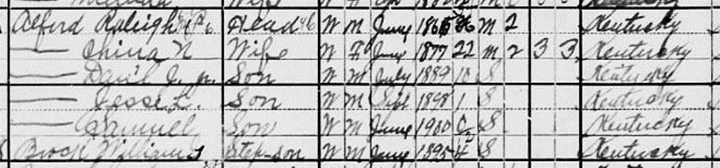 Alford Raleigh Head W M June 1865 M 2 Kentucky
China N Wife W F June 1877 22 M 2 3 3 Kentucky
Son W M July 1889 10 S Kentucky
Jesse L. Son W M 1898 1 S Kentucky
Samuel Son W M June 1900 S Kentucky
Brock William Step-son W M June 1895 4 S Kentucky